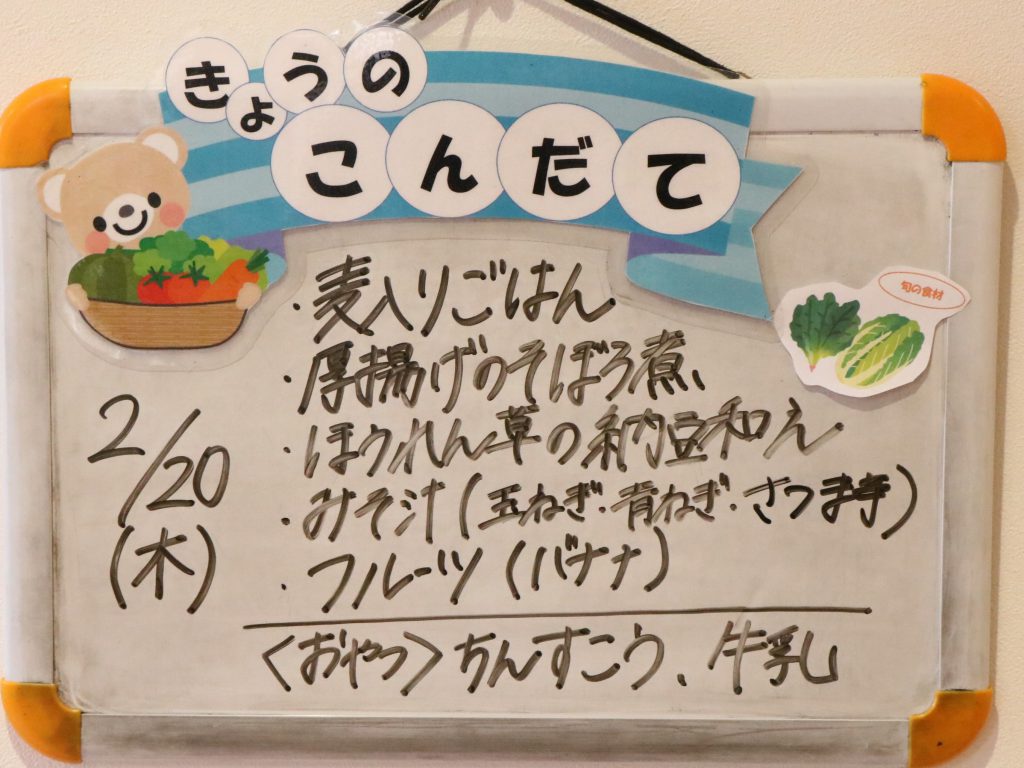 きょうの
こんだて
旬の食材
2/20
(木)
・麦入りごはん
・厚揚げのそぼろ煮
・ほうれん草の納豆和え
・みそ汁(玉ねぎ・青ねぎ・さつま芋)
・フルーツ(バナナ)
〈おやつ〉ちんすこう、牛乳